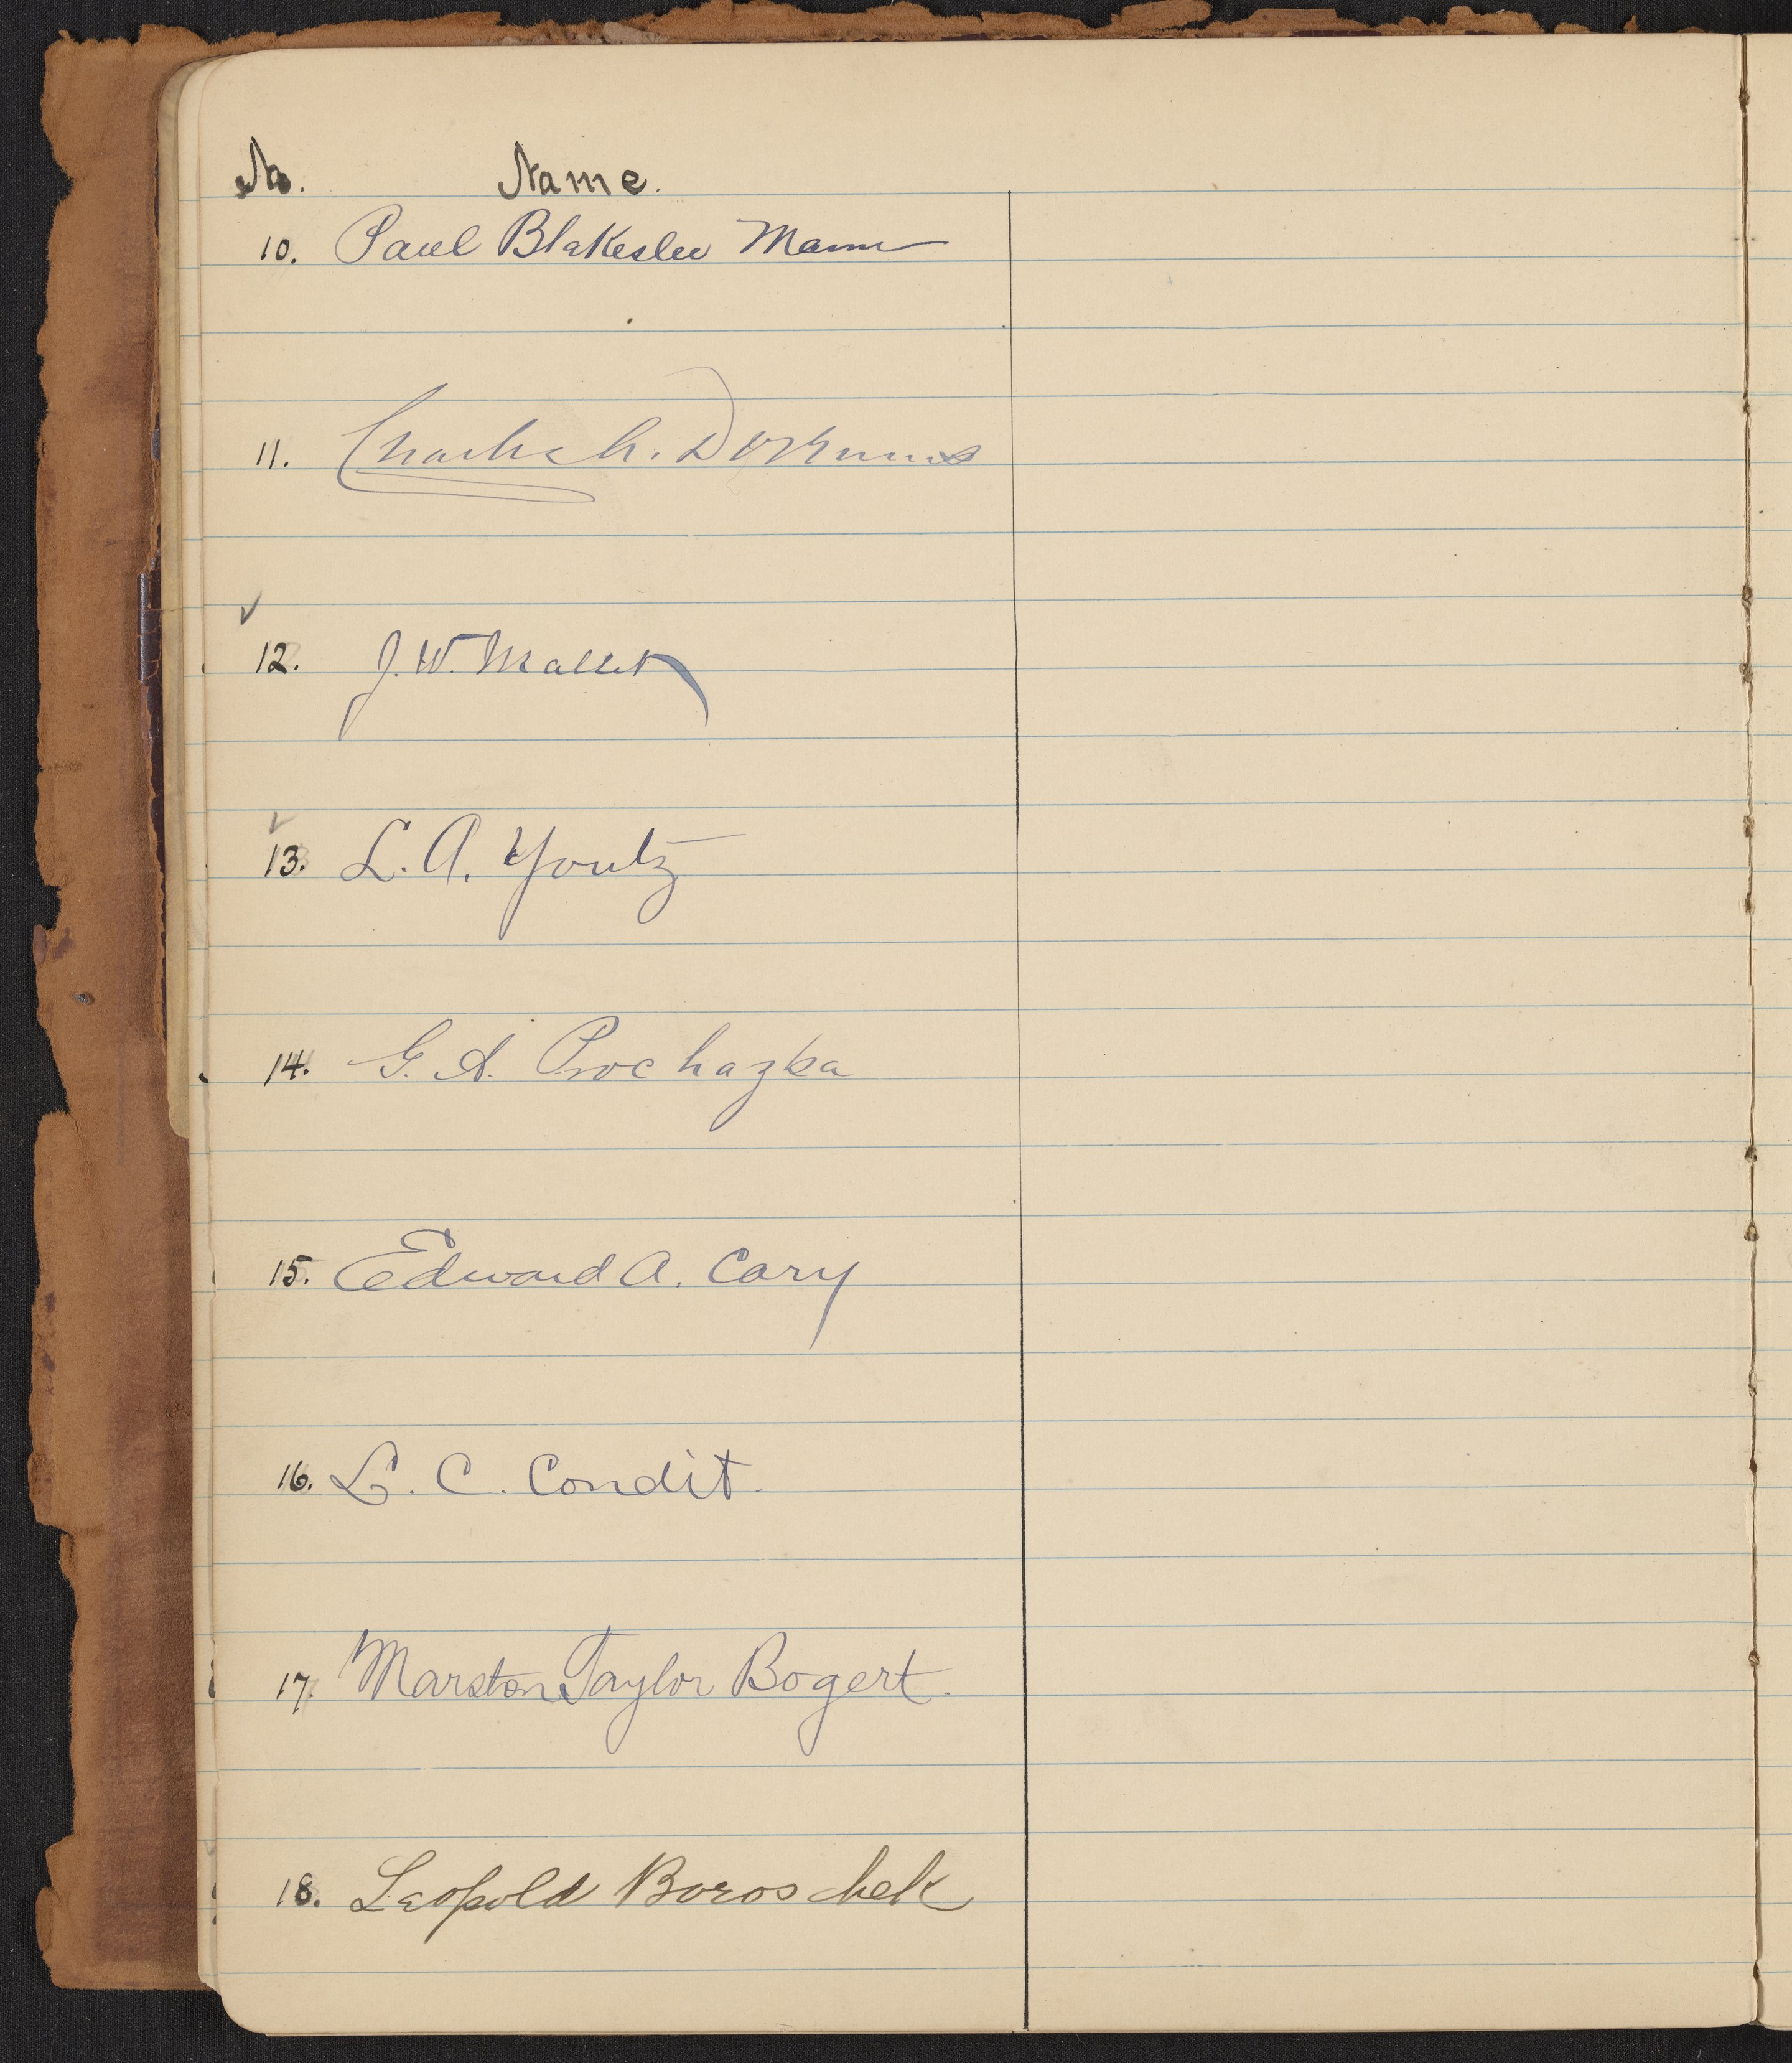 No. Name.
10. Paul Blakeslee Mann
11. Charles
12. J. W. Mallet
13. L. A. Youtz
14. G. A. Prochazka
15. Edward A. Cary
16. L. C. Condit.
17. Marston Taylor Bogert.
18. Leopold Boroschek